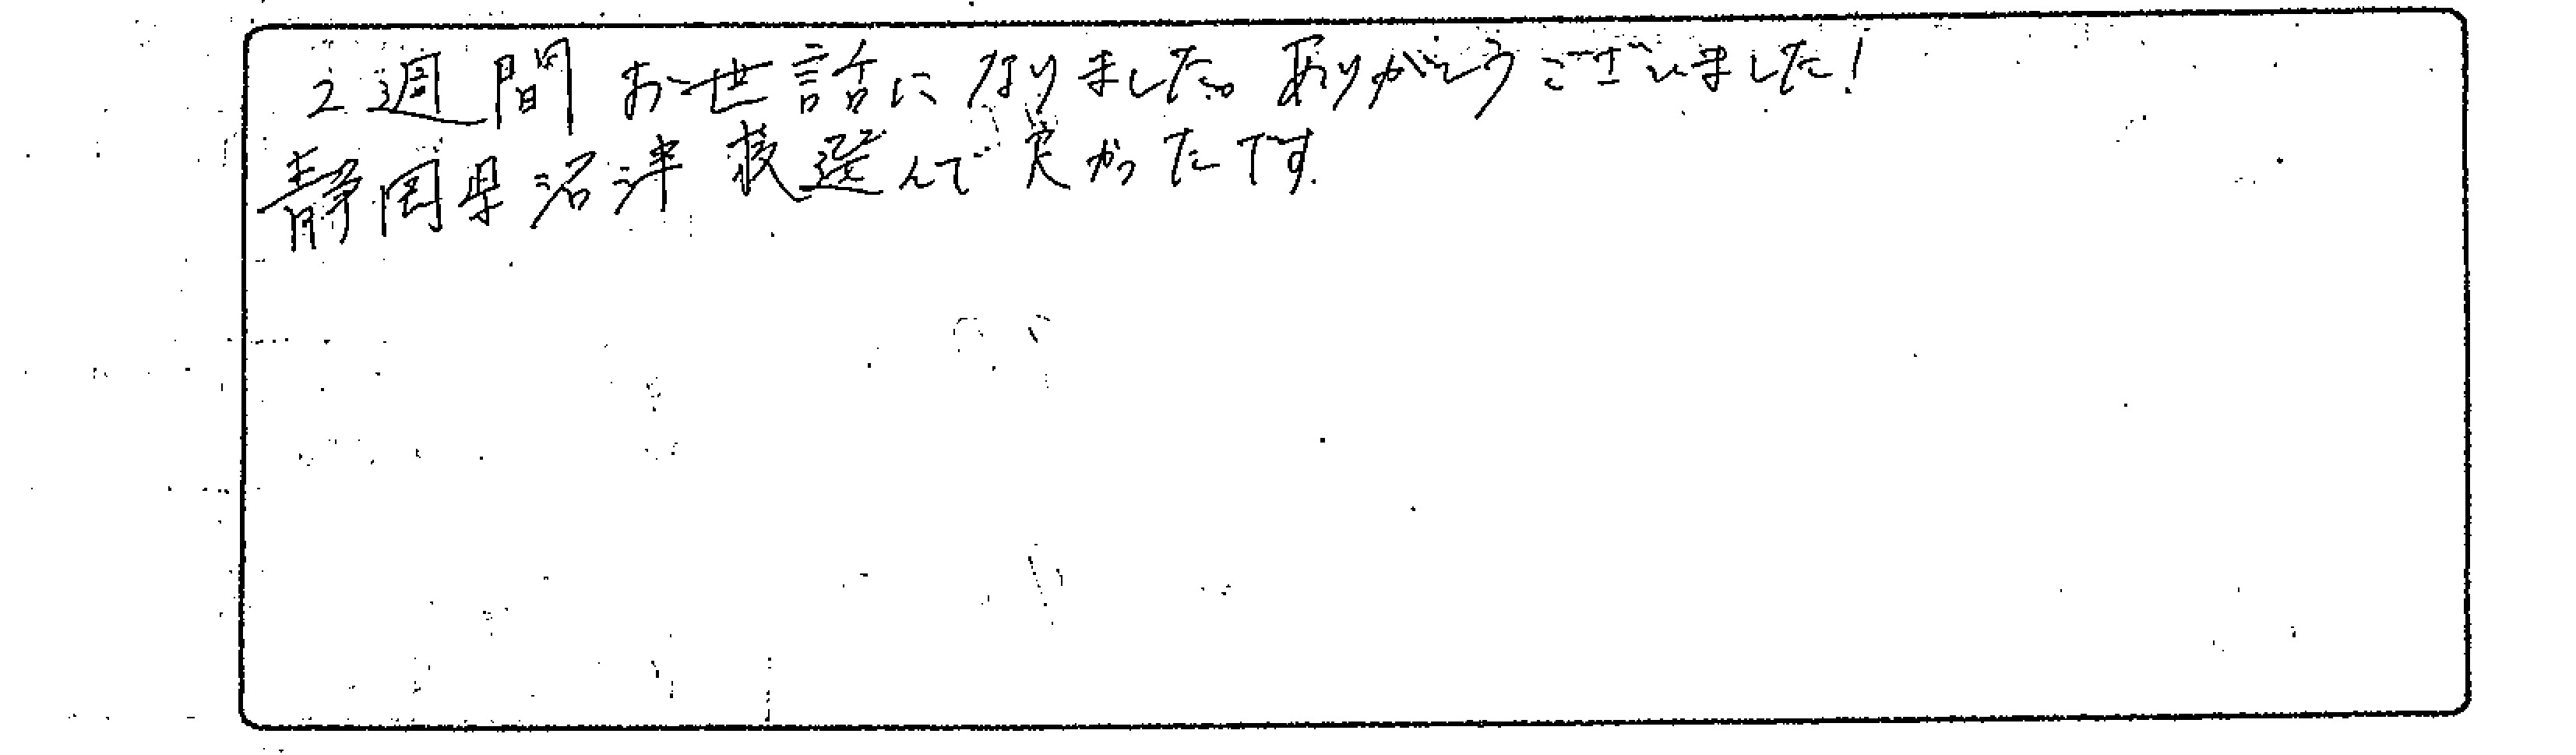 2週間お世話になりました。ありがとうございました!
静岡県沼津校選んで良かったです.